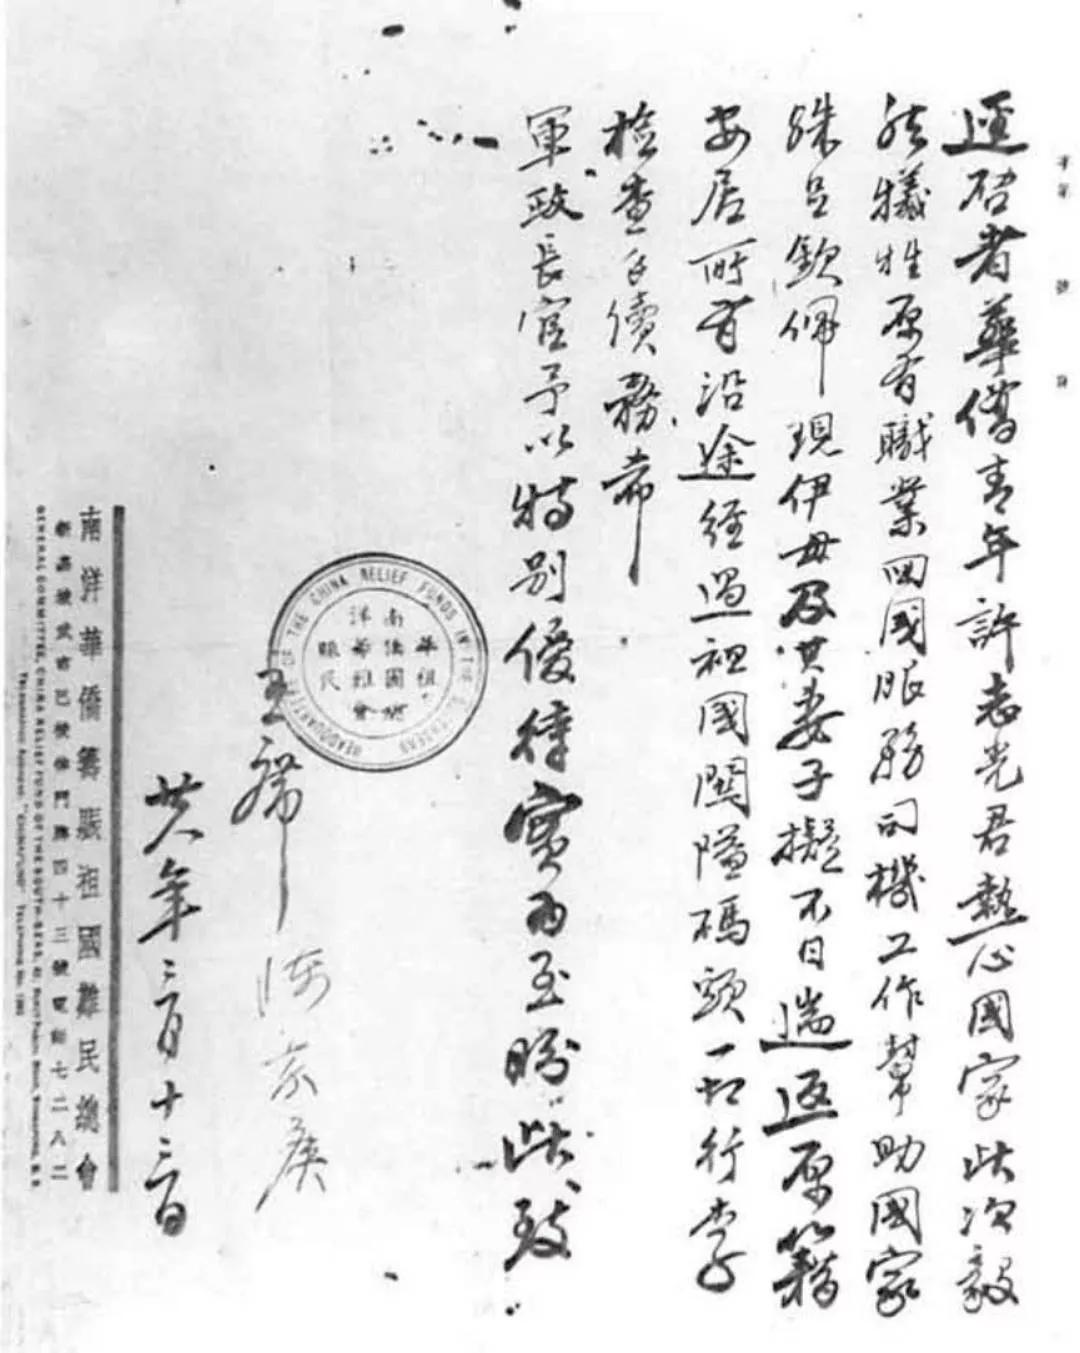 字第 號 頁
逕啓者華僑青年許志光君熱心國家此次毅
然犧牲原有職業回國服務司機工作幫助國家
殊足欽佩現伊母及其妻子擬不日遄返原籍
安居所有沿途經過祖國關隘碼頭一切行李
檢查手續務希
軍政長官予以特別優待實為至盼此致
主席 陳嘉庚
廿八年三月十三日
南洋華僑籌賑祖國難民總會
新嘉坡武吉巴梳律門牌四十三號電話七二八二
GENERAL COMMITTEE, CHINA RELIEF FUND OF THE SOUTH SEAS, 43, Bukit Pasoh Road, Singapore, S. S.
Telegraphic Address: "CHINAFUND" Telephone No.
HEADQUARTERS OF THE CHINA RELIEF FUNDS IN THE S.